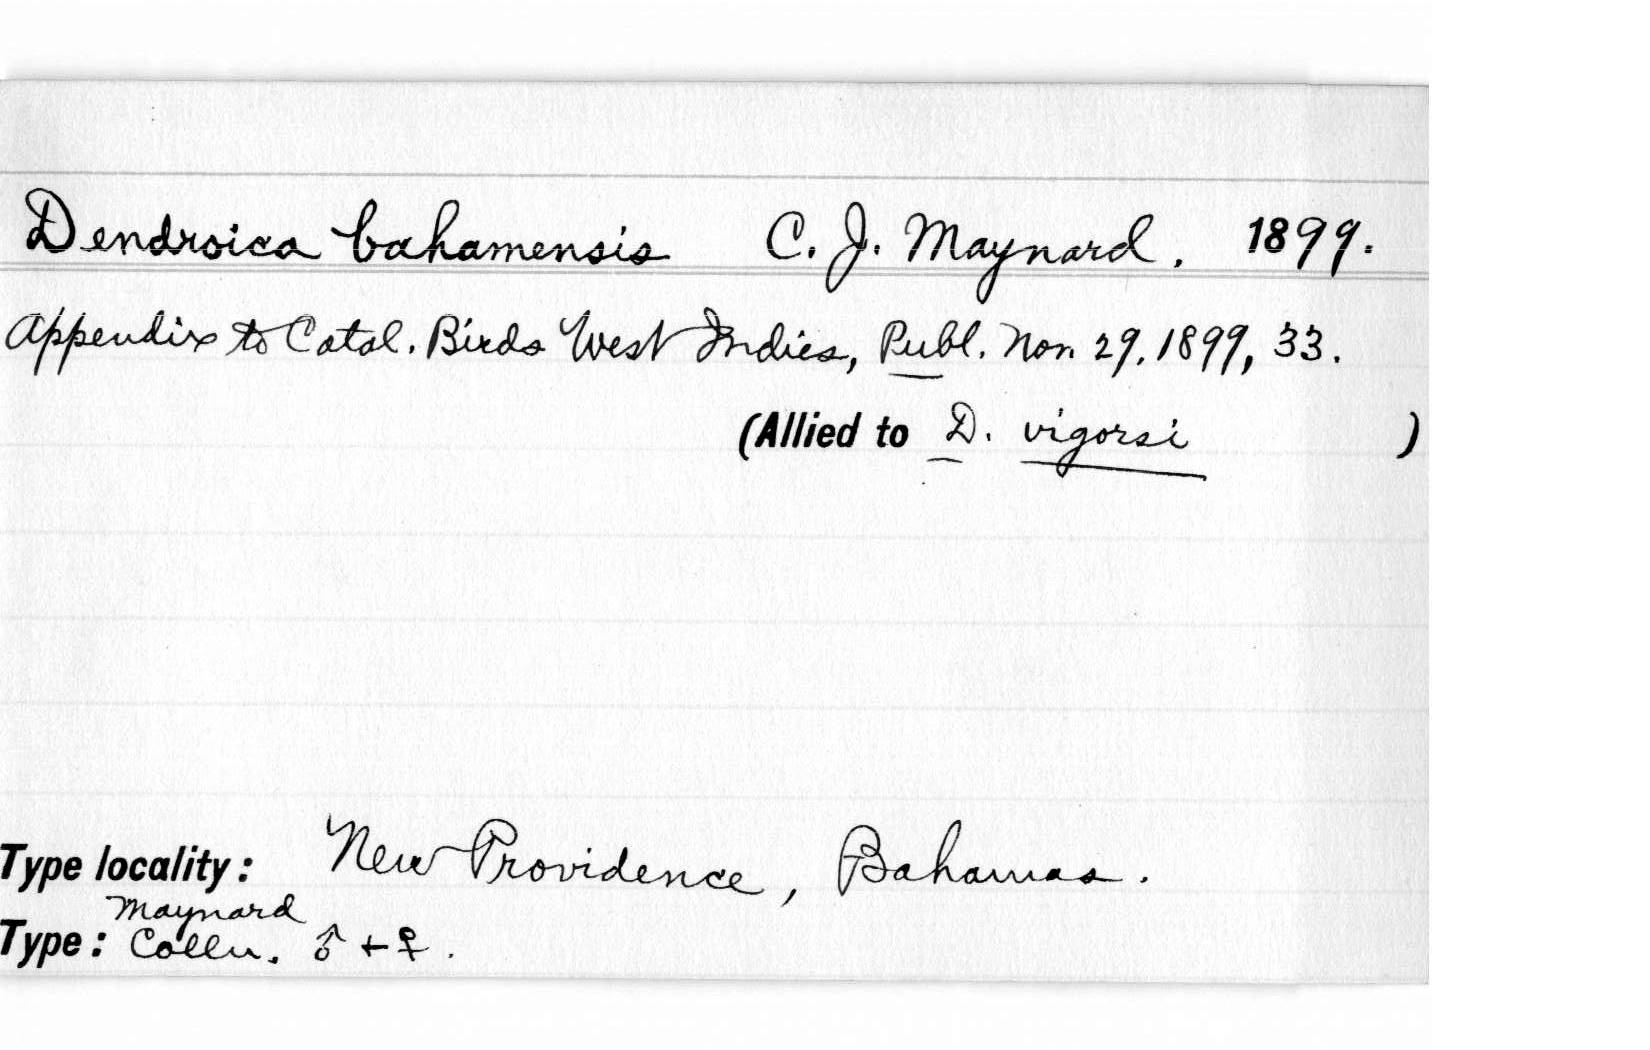 Dendroica bahamensis C. J. Maynard. 1899.
Appendix to Catal. Birds West Indies, Publ. Nov. 29, 1899, 33.
(Allied to D. vigorsi )
Type locality: New Providence, Bahamas.
Maynard
Type: Colln. ♂ + ♀.